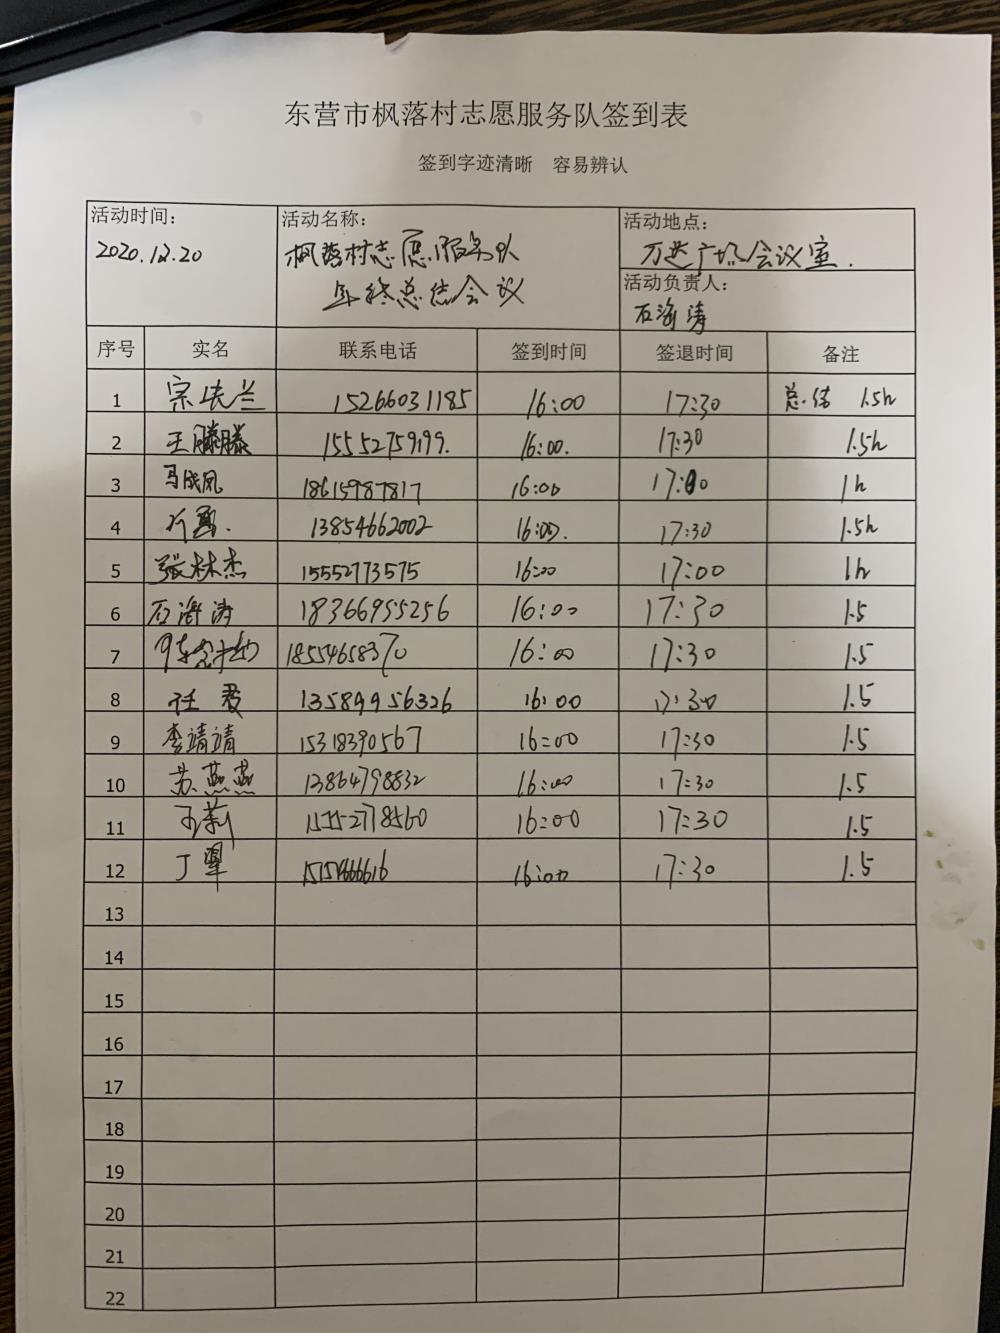 东营市枫落村志愿服务队签到表
签到字迹清晰 容易辨认
活动时间： 活动名称： 活动地点：
2020.12.20 枫落村志愿服务队 万达广场会议室.
年终总结会议 活动负责人：
石海涛
序号 实名 联系电话 签到时间 签退时间 备注
1 宗庆兰 15266031185 16:00 17:30 总结 1.5h
2 王滕滕 15552759199. 16:00. 17:30 1.5h
3 马成凤 18615987817 16:00 17:00 1h
4 13854662002 16:00. 17:30 1.5h
5 张林杰 15552773575 16:00 17:00 1h
6 石海涛 18366955256 16:00 17:30 1.5
7 18554658370 16:00 17:30 1.5
8 任君 13589956326 16:00 17:30 1.5
9 李靖靖 15318390567 16:00 17:30 1.5
10 苏燕燕 13864798832 16:00 17:30 1.5
11 王莉 15552778560 16:00 17:30 1.5
12 丁翠 1515466616 16:00 17:30 1.5
13
14
15
16
17
18
19
20
21
22